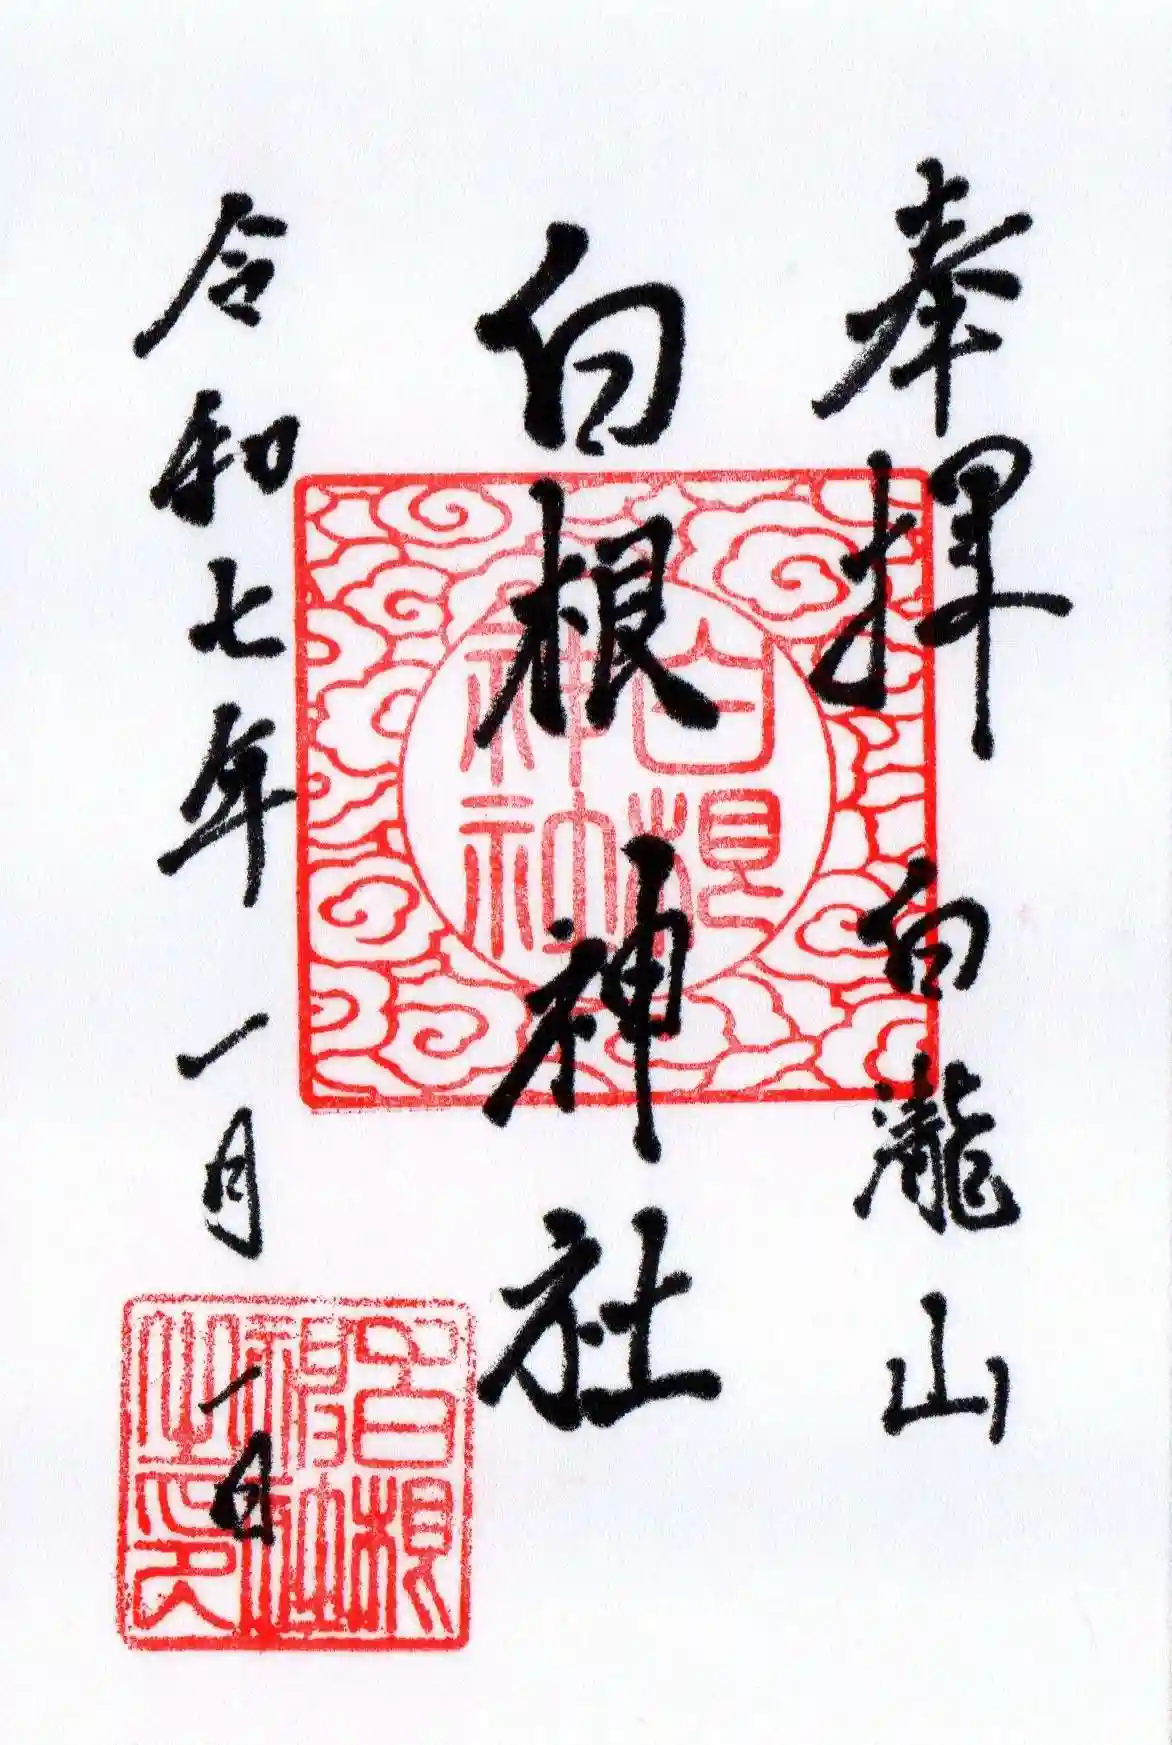 奉拝
白瀧山
白根神社
令和七年一月一日
白根
神社
白根
神社
之印